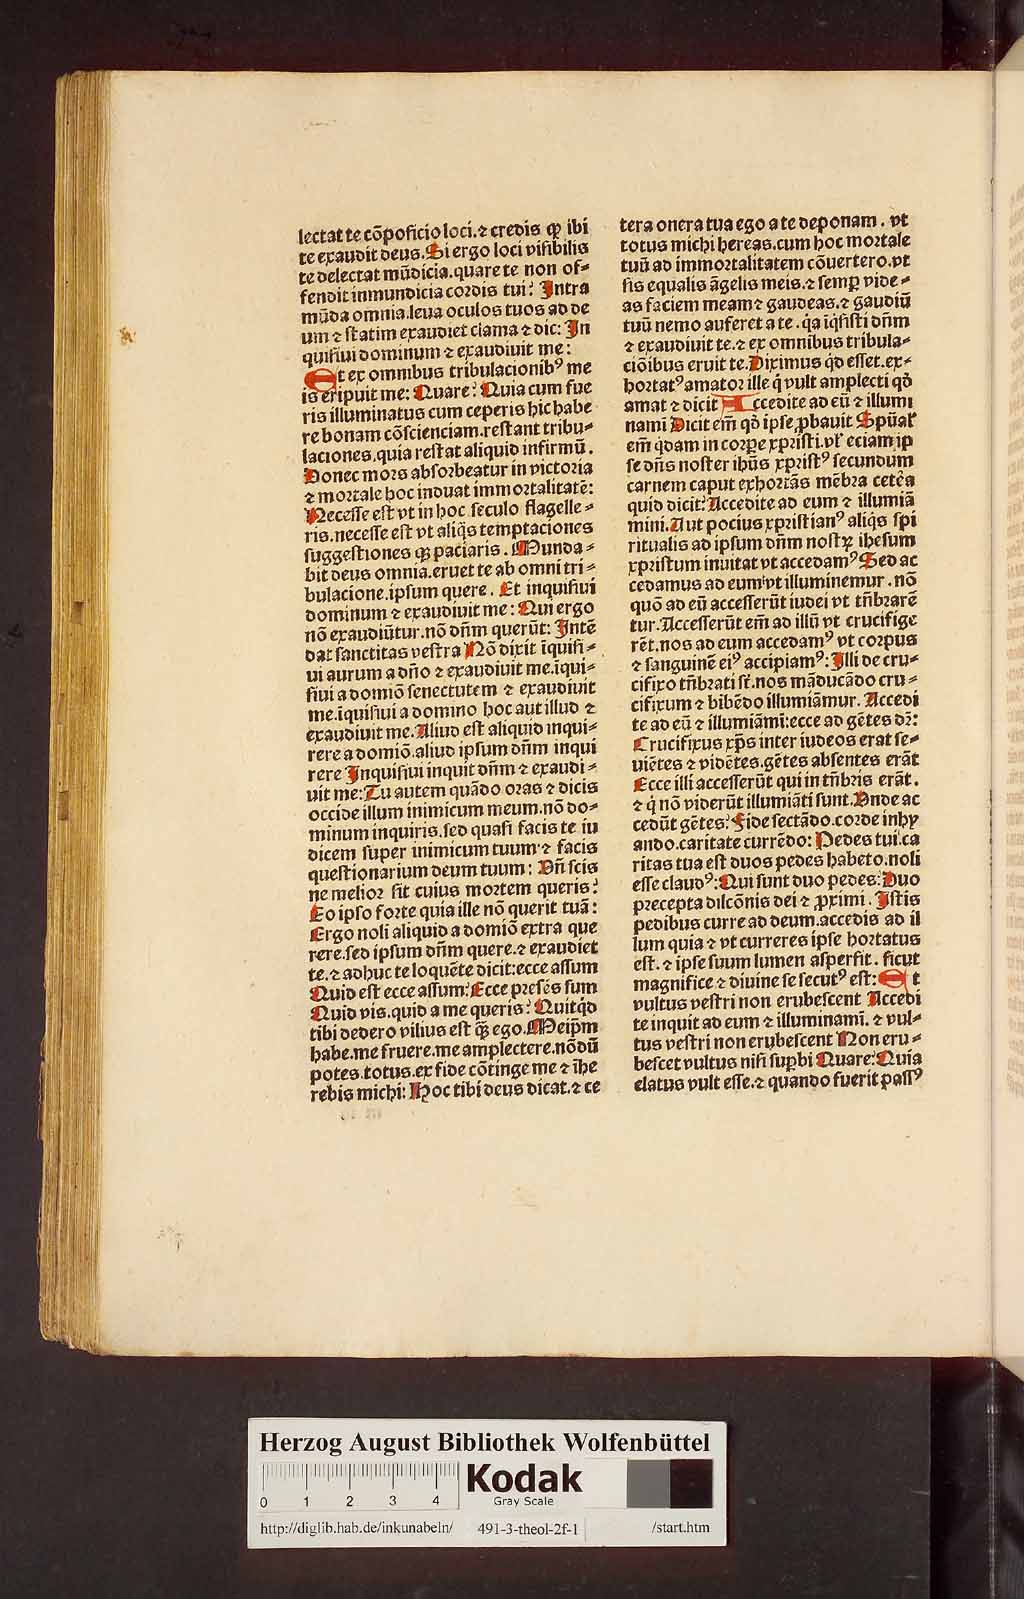 lectat te cōpoficio loci.⁊ credis ꝙ ibi
te exaudit deus.Si ergo loci visibilis
te delectat mūdicia.quare te non of⸗
fendit inmundicia cordis tui? Intra
mūda omnia.leua oculos tuos ad de
um ⁊ statim exaudiet clama ⁊ dic: In
quisiui dominum ⁊ exaudiuit me:
Et ex omnibus tribulacionibꝰ me
is eripuit me: Quare? Quia cum fue
ris illuminatus cum ceperis hic habe
re bonam cōscienciam.restant tribu⸗
laciones.quia restat aliquid infirmū.
Donec mors absorbeatur in victoria
⁊ mortale hoc induat immortalitatē:
Necesse est vt in hoc seculo flagelle⸗
ris.necesse est vt aliq̄s temptaciones
suggestiones qꝫ paciaris. Munda⸗
bit deus omnia.eruet te ab omni tri⸗
bulacione.ipsum quere. Et inquisiui
dominum ⁊ exaudiuit me: Qui ergo
nō exaudiūtur.nō dn̄m querūt: Intē
dat sanctitas vestra Nō dixit īquisi⸗
ui aurum a dn̄o ⁊ exaudiuit me.īqui⸗
siui a domiō senectutem ⁊ exaudiuit
me.īquisiui a domino hoc aut illud ⁊
exaudiuit me.Aliud est aliquid inqui⸗
rere a domiō.aliud ipsum dn̄m inqui
rere Inquisiui inquit dn̄m ⁊ exaudi⸗
uit me:Tu autem quādo oras ⁊ dicis
occide illum inimicum meum.nō do⸗
minum inquiris.sed quasi facis te iu
dicem super inimicum tuum ⁊ facis
questionarium deum tuum: Vn̄ scis
ne melior sit cuius mortem queris?
Eo ipso forte quia ille nō querit tuā:
Ergo noli aliquid a domiō extra que
rere.sed ipsum dn̄m quere.⁊ exaudiet
te.⁊ adhuc te loquēte dicit:ecce assum
Quid est ecce assum? Ecce presēs sum
Quid vis.quid a me queris? Quitq̇d
tibi dedero vilius est q̄ꝫ ego.Meipm
habe.me fruere.me amplectere.nōdū
potes.totus.ex fide cōtinge me ⁊ īhe
rebis michi: Hoc tibi deus dicat.⁊ ce
tera onera tua ego a te deponam. vt
totus michi hereas.cum hoc mortale
tuū ad immortalitatem cōuertero.vt
sis equalis āgelis meis.⁊ semꝑ vide⸗
as faciem meam ⁊ gaudeas.⁊ gaudiū
tuū nemo auferet a te. q̇a īq̇sisti dn̄m
⁊ exaudiuit te.⁊ ex omnibus tribula⸗
ciōibus eruit te.Diximus qd̄ esset.ex⸗
hortatꝰ amator ille q̇ vult amplecti qd̄
amat ⁊ dicit Accedite ad eū ⁊ illumi
namī Dicit em̄ qd̄ ipse ꝓbauit Spūał
em̄ q̇dam in corpe xp̄risti.vł eciam ip
se dn̄s noster ihūs xpristꝰ secundum
carnem caput exhortās mēbra cetēa
quid dicit? Accedite ad eum ⁊ illumiā
mini.Aut pocius xpristianꝰ aliq̄s spi
ritualis ad ipsum dn̄m nostꝝ ihesum
xpristum inuitat vt accedamꝰ Sed ac
cedamus ad eum vt illuminemur. nō
quō ad eū accesserūt iudei vt tn̄brarē
tur.Accesserūt em̄ ad illū vt crucifige
rēt.nos ad eum accedamꝰ vt corpus
⁊ sanguinē eiꝰ accipiamꝰ: Illi de cru⸗
cifixo tn̄brati st̄.nos māducādo cru⸗
cifixum ⁊ bibēdo illumiāmur. Accedi
te ad eū ⁊ illumiāmī:ecce ad gētes dr̄:
Crucifixus xp̄s inter iudeos erat se⸗
uiētes ⁊ vidētes.gētes absentes erāt
Ecce illi accesserūt qui in tn̄bris erāt.
⁊ q̇ nō viderūt illumiāti sunt.Vnde ac
cedūt gētes? Fide sectādo.corde inhy
ando.caritate currēdo: Pedes tui.ca
ritas tua est duos pedes habeto.noli
esse claudꝰ: Qui sunt duo pedes? Duo
precepta dilcōnis dei ⁊ ꝓximi. Istis
pedibus curre ad deum.accedis ad il
lum quia ⁊ vt curreres ipse hortatus
est. ⁊ ipse suum lumen aspersit. sicut
magnifice ⁊ diuine se secutꝰ est: Et
vultus vestri non erubescent Accedi
te inquit ad eum ⁊ illuminamī. ⁊ vul⸗
tus vestri non erubescent Non eru⸗
bescet vultus nisi suꝑbi Quare? Quia
elatus vult esse.⁊ quando fuerit passꝰ
Herzog August Bibliothek Wolfenbüttel
0 1 2 3 4
Kodak
Gray Scale
http://diglib.hab.de/inkunabeln/ 491-3-theol-2f-1 /start.htm